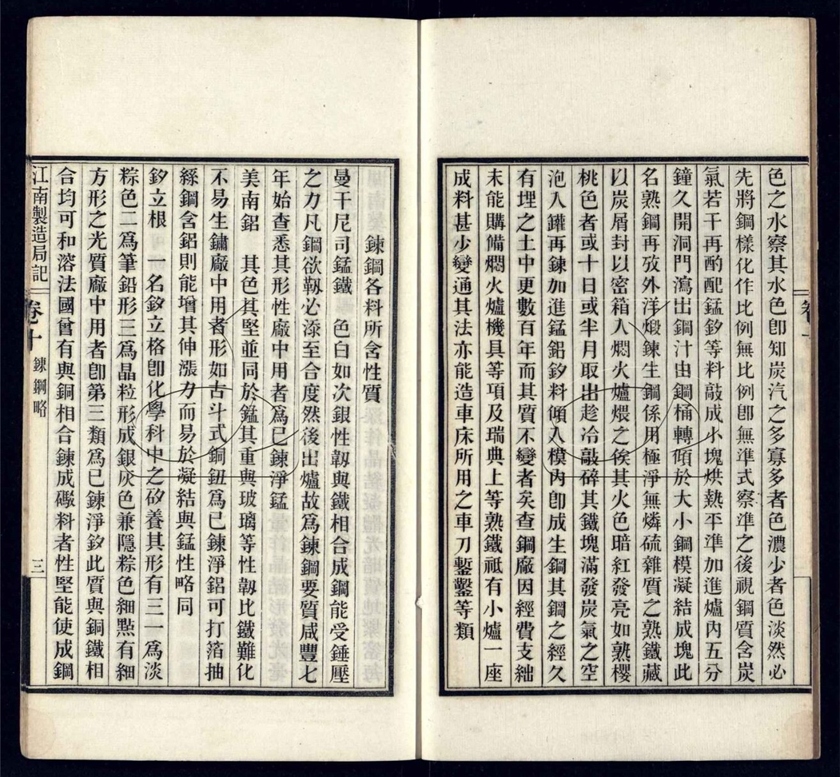 色之水察其水色卽知炭汽之多寡多者色濃少者色淡然必
先將鋼樣化作比例無比例卽無準式察準之後視鋼質含炭
氣若干再酌配錳矽等料敲成小塊烘熱平準加進爐內五分
鐘久開洞門瀉出鋼汁由鋼桶轉傾於大小鋼模凝結成塊此
名熟鋼再攷外洋煅鍊生鋼係用極淨無燐硫雜質之熟鐵藏
以炭屑封以密箱入燜火爐煨之俟其火色暗紅發亮如熟櫻
桃色者或十日或半月取出趁冷敲碎其鐵塊滿發炭氣之空
泡入罐再鍊加進錳鋁矽料傾入模內卽成生鋼其鋼之經久
有埋之土中更數百年而其質不變者矣查鋼廠因經費支絀
未能購備燜火爐機具等項及瑞典上等熟鐵祗有小爐一座
成料甚少變通其法亦能造車床所用之車刀鏨鑿等類
卷十
鍊鋼各料所含性質
曼干尼司錳鐵　色白如次銀性韌與鐵相合成鋼能受錘壓
之力凡鋼欲韌必添至合度然後出爐故爲鍊鋼要質咸豐七
年始查悉其形性廠中用者爲已鍊淨錳
美南鋁　其色其堅並同於錳其重與玻璃等性韌比鐵難化
不易生鏽廠中用者形如古斗式銅鈕爲已鍊淨鋁可打箔抽
絲鋼含鋁則能增其伸漲力而易於凝結與錳性略同
矽立根　一名矽立格卽化學科中之矽養其形有三一爲淡
粽色二爲筆鉛形三爲晶粒形成銀灰色兼隱粽色細㸃有細
方形之光質廠中用者卽第三類爲已鍊淨矽此質與銅鐵相
合均可和溶法國曾有與銅相合鍊成礮料者性堅能使成鋼
江南製造局記　卷十　鍊鋼略　三